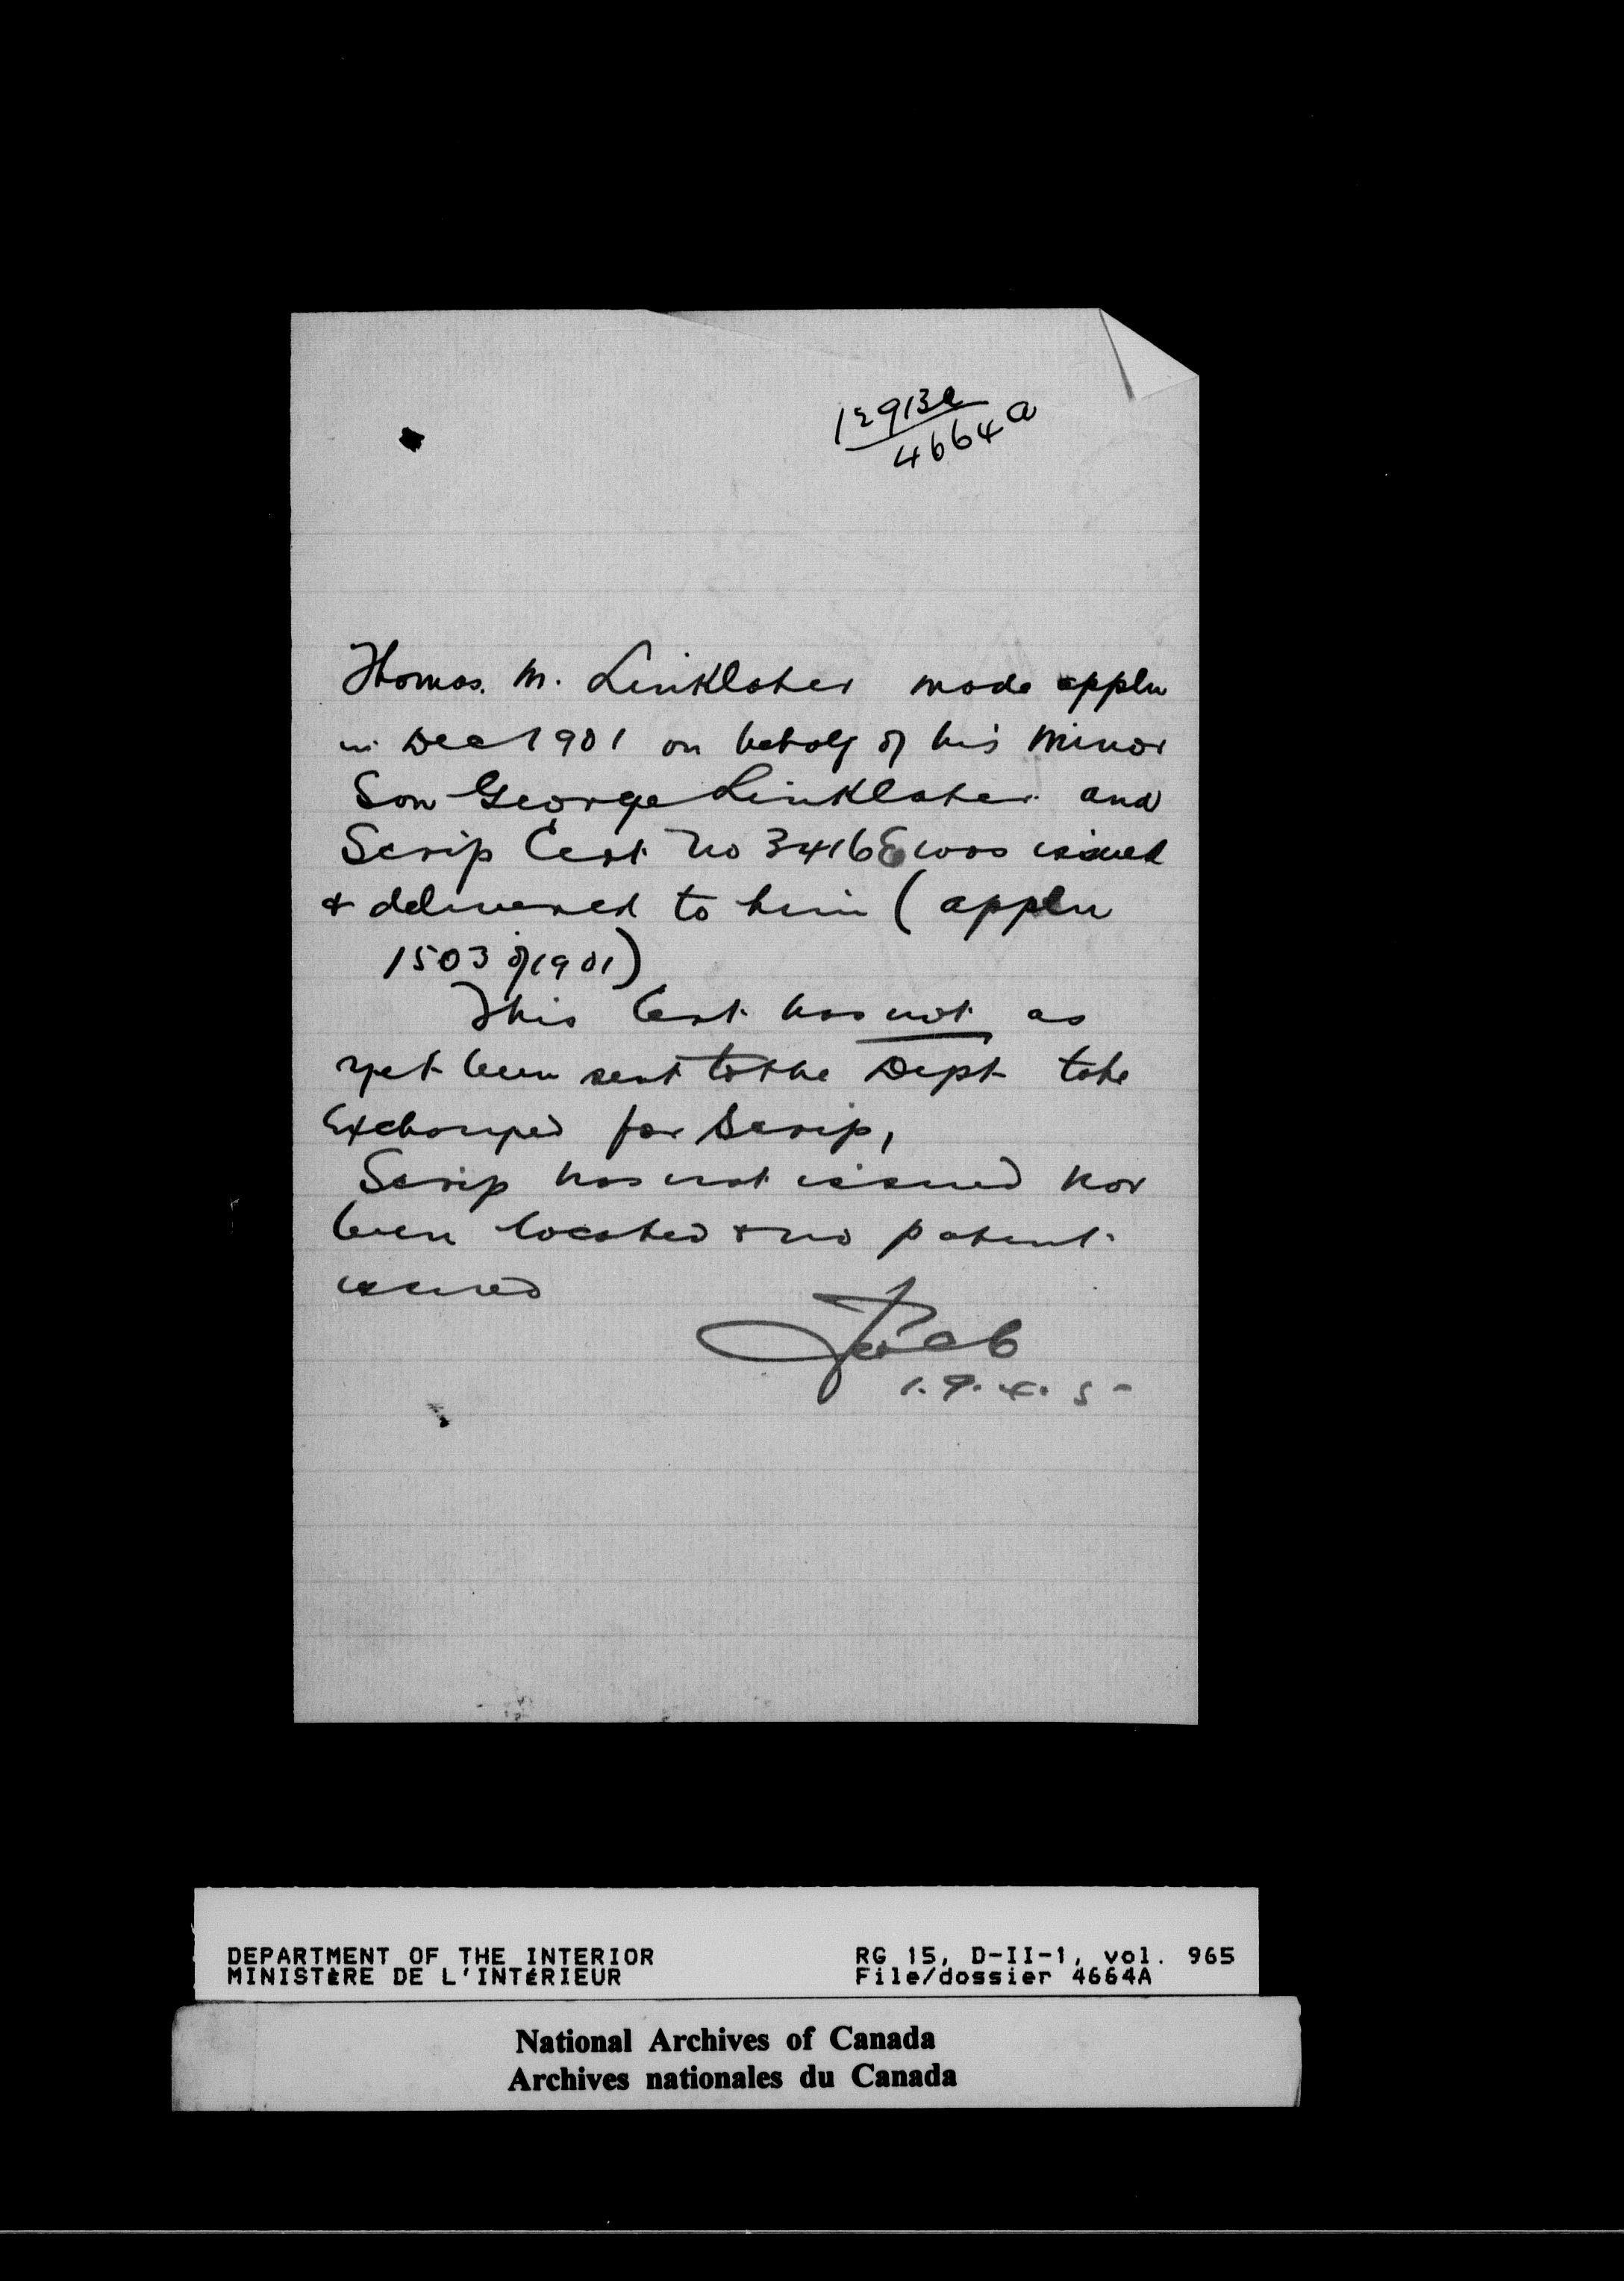 4664 a
Thomas. M. Linklater made appln
in Dec 1901 on behalf of his minor
Son George Linklater and
Scrip Cert No 3416 E was issued
& delivered to him ( appln
1503 of 1901)
This Cert has not as
yet been sent to the Dept to be
Exchanged for Scrip,
Scrip has not issued nor
been located & no patent
issued
1.9.4.5
DEPARTMENT OF THE INTERIOR
MINISTÈRE DE L'INTÉRIEUR
RG 15, D-II-1, vol. 965
File/dossier 4664A
National Archives of Canada
Archives nationales du Canada